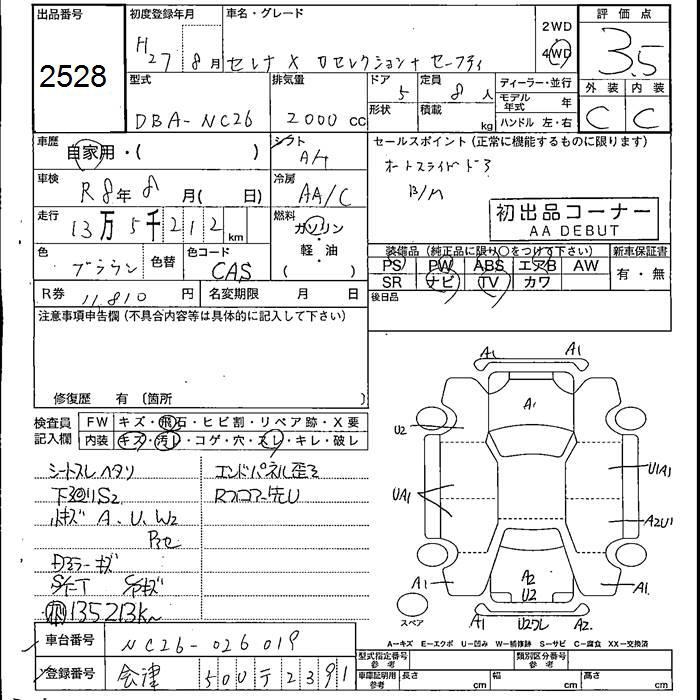 出品番号
2528
初度登録年月
H27 8月
車名・グレード
セレナ X Vセレクション+セーフティ
2WD
4WD
評価点
3.5
外装 内装
C C
型式
DBA-NC26
排気量
2000 cc
ドア 5
形状
定員 8人
積載 kg
ディーラー・並行
モデル年式 年
ハンドル 左・右
車歴
自家用・( )
シフト
A/T
セールスポイント (正常に機能するものに限ります)
オートスライドドア
B/M
初出品コーナー
AA DEBUT
車検
R8年8月( 日)
冷房
AA/C
走行
13万5千212km
燃料
ガソリン
軽・油
( )
色
ブラウン
色替
色コード
CAS
装備品 (純正品に限り○をつけて下さい)
新車保証書
PS PW ABS エアB AW
SR ナビ TV カワ
有・無
R券 11,810円
名変期限 月 日
後日品
注意事項申告欄 (不具合内容等は具体的に記入して下さい)
修復歴 有 (箇所 )
検査員記入欄
FW キズ・飛石・ヒビ割・リペア跡・X要
内装 キズ・汚レ・コゲ・穴・スレ・キレ・破レ
シートスレヘタリ
エンドパネル歪ミ
Rフロアー先U
A、U、W2
135213K
A1 A1
A1
U2
U1A1
UA1
A2U1
A1
A2
U2
A1
スペア
A1
A2
A-キズ E-エクボ U-凹み W-補修跡 S-サビ C-腐食 XX-交換済
車台番号
NC26-026019
型式指定番号 参考
類別区分番号 参考
登録番号
会津 500 テ 2391
車庫証明用 参考
長さ cm
幅 cm
高さ cm